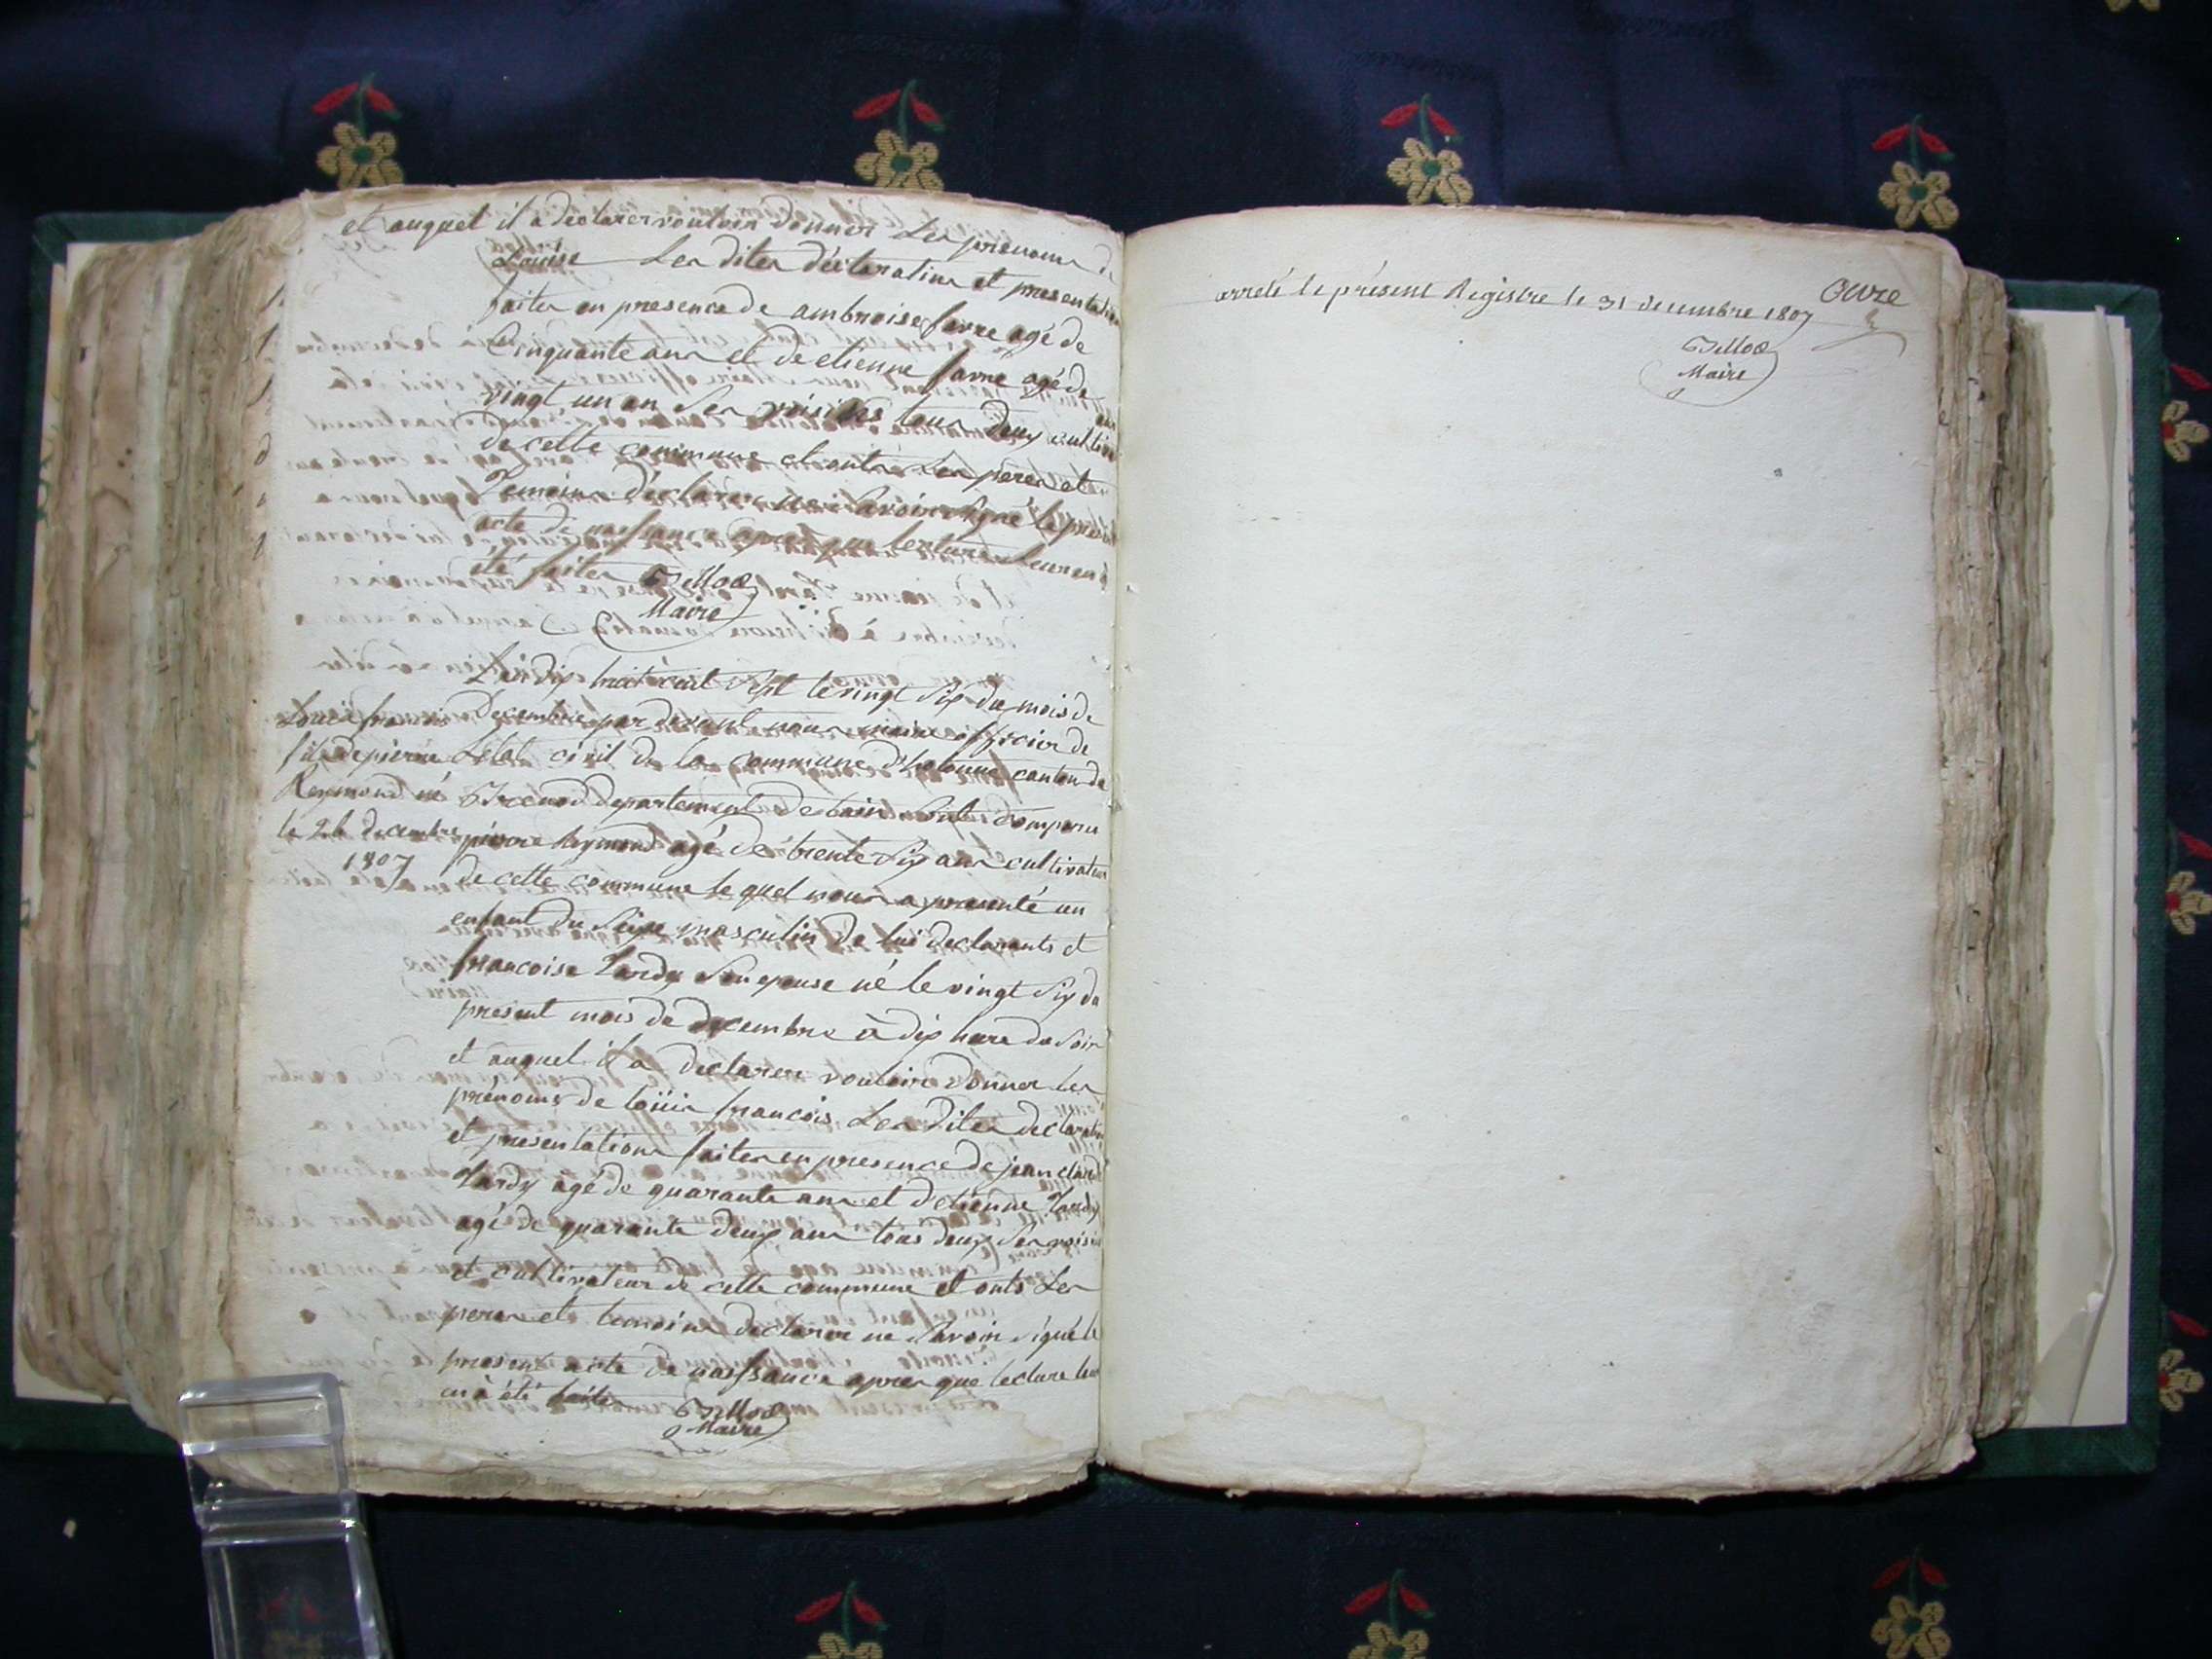 et auquel il a declarer vouloir donner Les prenoms de
Louise Les dites déclaration et presentation
faites en presence de ambroise favre agé de
Cinquante ans et de etienne favre agé de
vingt un an Ses voisins tous deux cultiva
de cette commune et onts Les peres et
Temoins déclarer ne Savoir Signé le present
acte de naissance apres que lecture leur en à
été faites Billod
Maire
L'an dix huit cent Sept le vingt Six du mois de
Decembre par devant nous maire officier de
L'état civil de la commune d'hotonne canton de
Brenod departement de Lain Sont comparu
pierre Reymond agé de trente Six ans cultivateur
de cette commune le quel nous a presenté un
enfant du Sexe masculin de lui declarants et
francoise Tardy Son epouse né le vingt Six du
present mois de decembre à dix hure du Soir
et auquel il a declarer vouloir donner les
prénoms de loüis francois Les Dites declaration
et presentations faites en presence de jean claude
Tardy âgé de quarante ans et d'etienne Tardy
agé de quarante deux ans tous deux Ses voisin
et cultivateur de cette commune et onts Les
peres et temoins declarer ne Savoir Signé le
present acte de naissance apres que lecture leur
en à été faites Billod
Maire
Louis francois
fils de pierre
Reymond né
le 26 decembre
1807
arreté le présent Registre le 31 decembre 1807
Billod
Maire